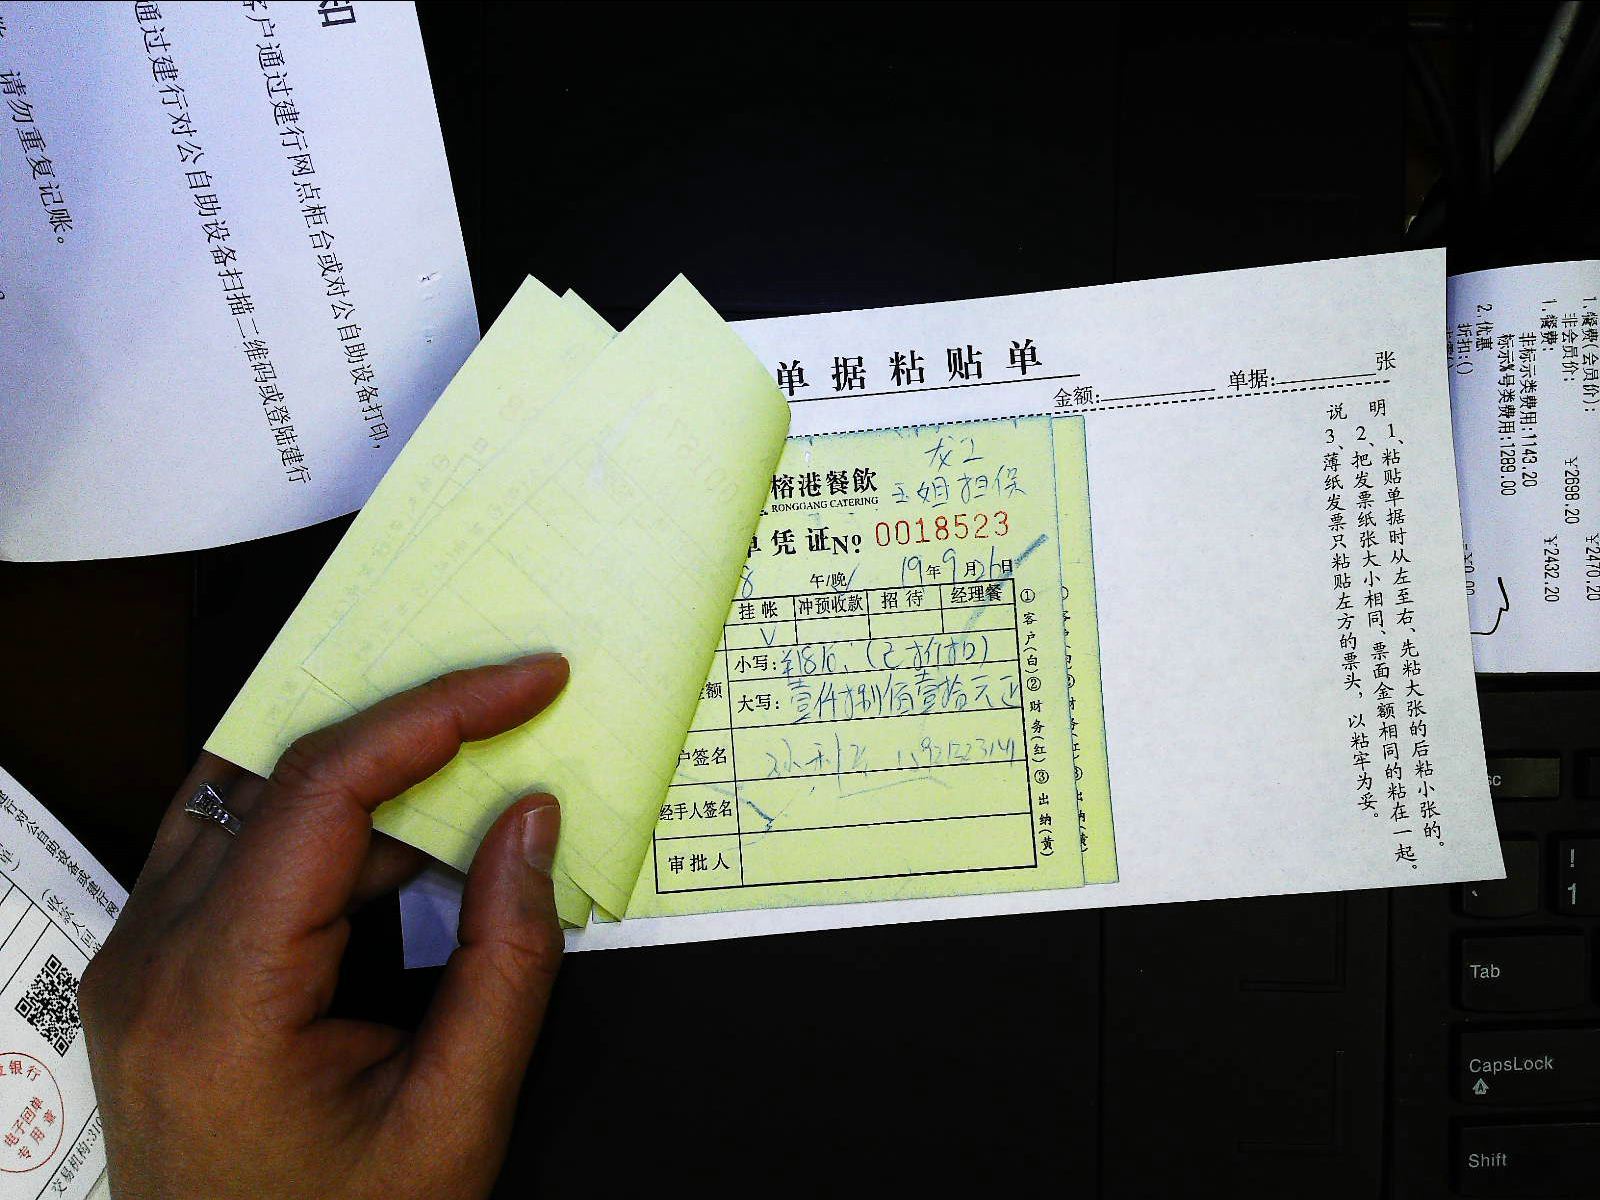 知
客户通过建行网点柜台或对公自助设备打印，
通过建行对公自助设备扫描二维码或登陆建行
请勿重复记账。
单据粘贴单
金额： 单据： 张
说明
1、粘贴单据时从左至右、先粘大张的后粘小张的。
2、把发票纸张大小相同、票面金额相同的粘在一起。
3、薄纸发票只粘贴左方的票头，以粘牢为妥。
玉姐担保
榕港餐飲
RONGGANG CATERING
单凭证No 0018523
8 午/晚 19年9月26日
挂帐 冲预收款 招待 经理餐
V
小写：¥1810.(已折扣)
金额
大写：壹仟捌佰壹拾元正
户签名
经手人签名
审批人
①客户(白)②财务(红)③出纳(黄)
1.餐费(会员价)： ¥2470.20
非会员价： ¥2698.20
1.餐费： ¥2432.20
非标示类费用:1143.20
标示类费用:1289.00
2.优惠
折扣:()
行对公自助设备或建行网
(收款人回
银行
电子回单
专用章
交易机构:310
Tab
CapsLock
Shift
!
1